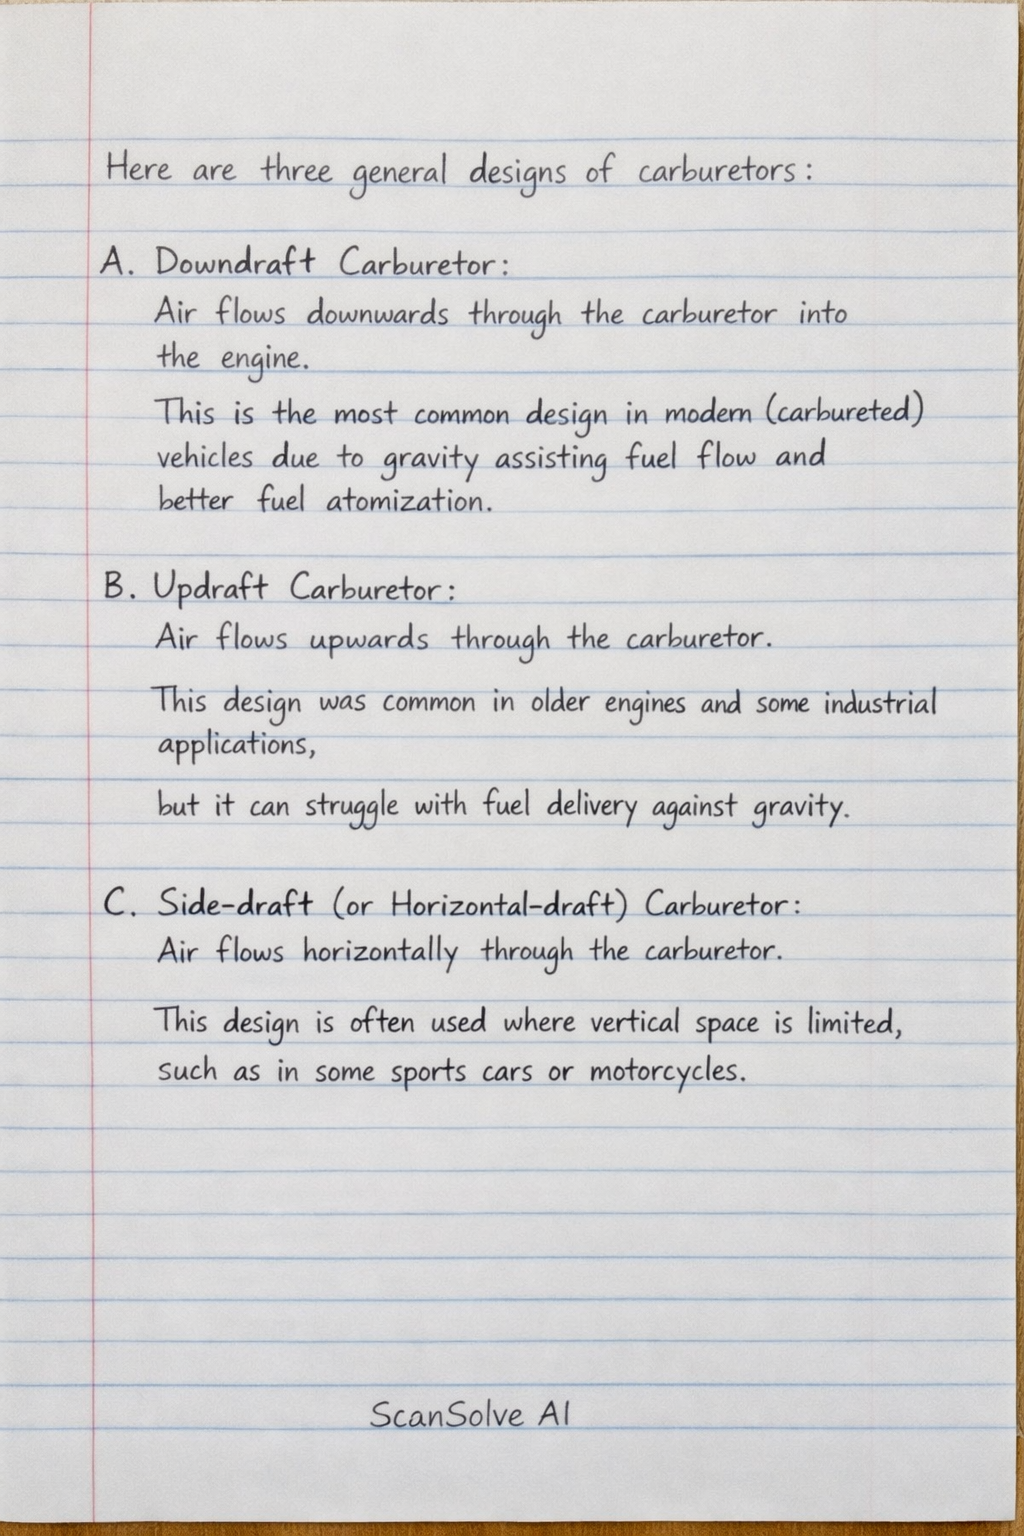 Here are three general designs of carburetors:
A. Downdraft Carburetor:
Air flows downwards through the carburetor into
the engine.
This is the most common design in modern (carbureted)
vehicles due to gravity assisting fuel flow and
better fuel atomization.
B. Updraft Carburetor:
Air flows upwards through the carburetor.
This design was common in older engines and some industrial
applications,
but it can struggle with fuel delivery against gravity.
C. Side-draft (or Horizontal-draft) Carburetor:
Air flows horizontally through the carburetor.
This design is often used where vertical space is limited,
such as in some sports cars or motorcycles.
ScanSolve AI